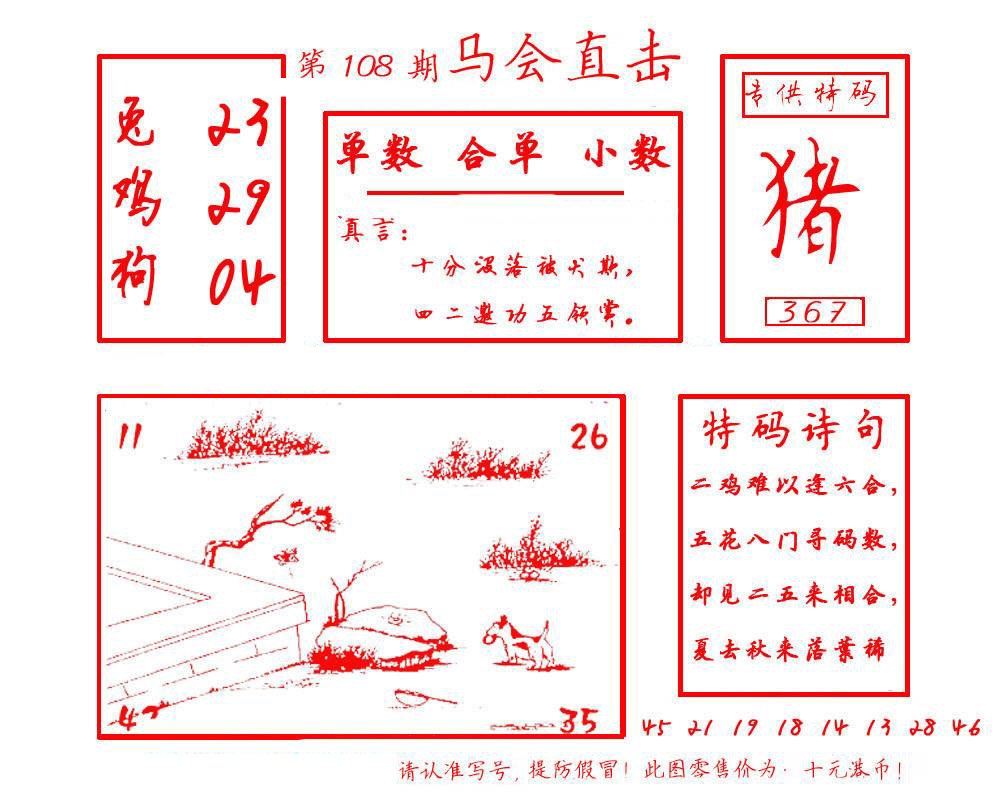 第 108 期 马会直击
兔 23
鸡 29
狗 04
单数 合单 小数
真言：
十分没落被犬欺，
四二邀功五领赏。
专供特码
猪
367
11
26
35
特码诗句
二鸡难以逢六合，
五花八门寻码数，
却见二五来相合，
夏去秋来落葉稀
45 21 19 18 14 13 28 46
请认准写号，提防假冒！此图零售价为·十元港币！